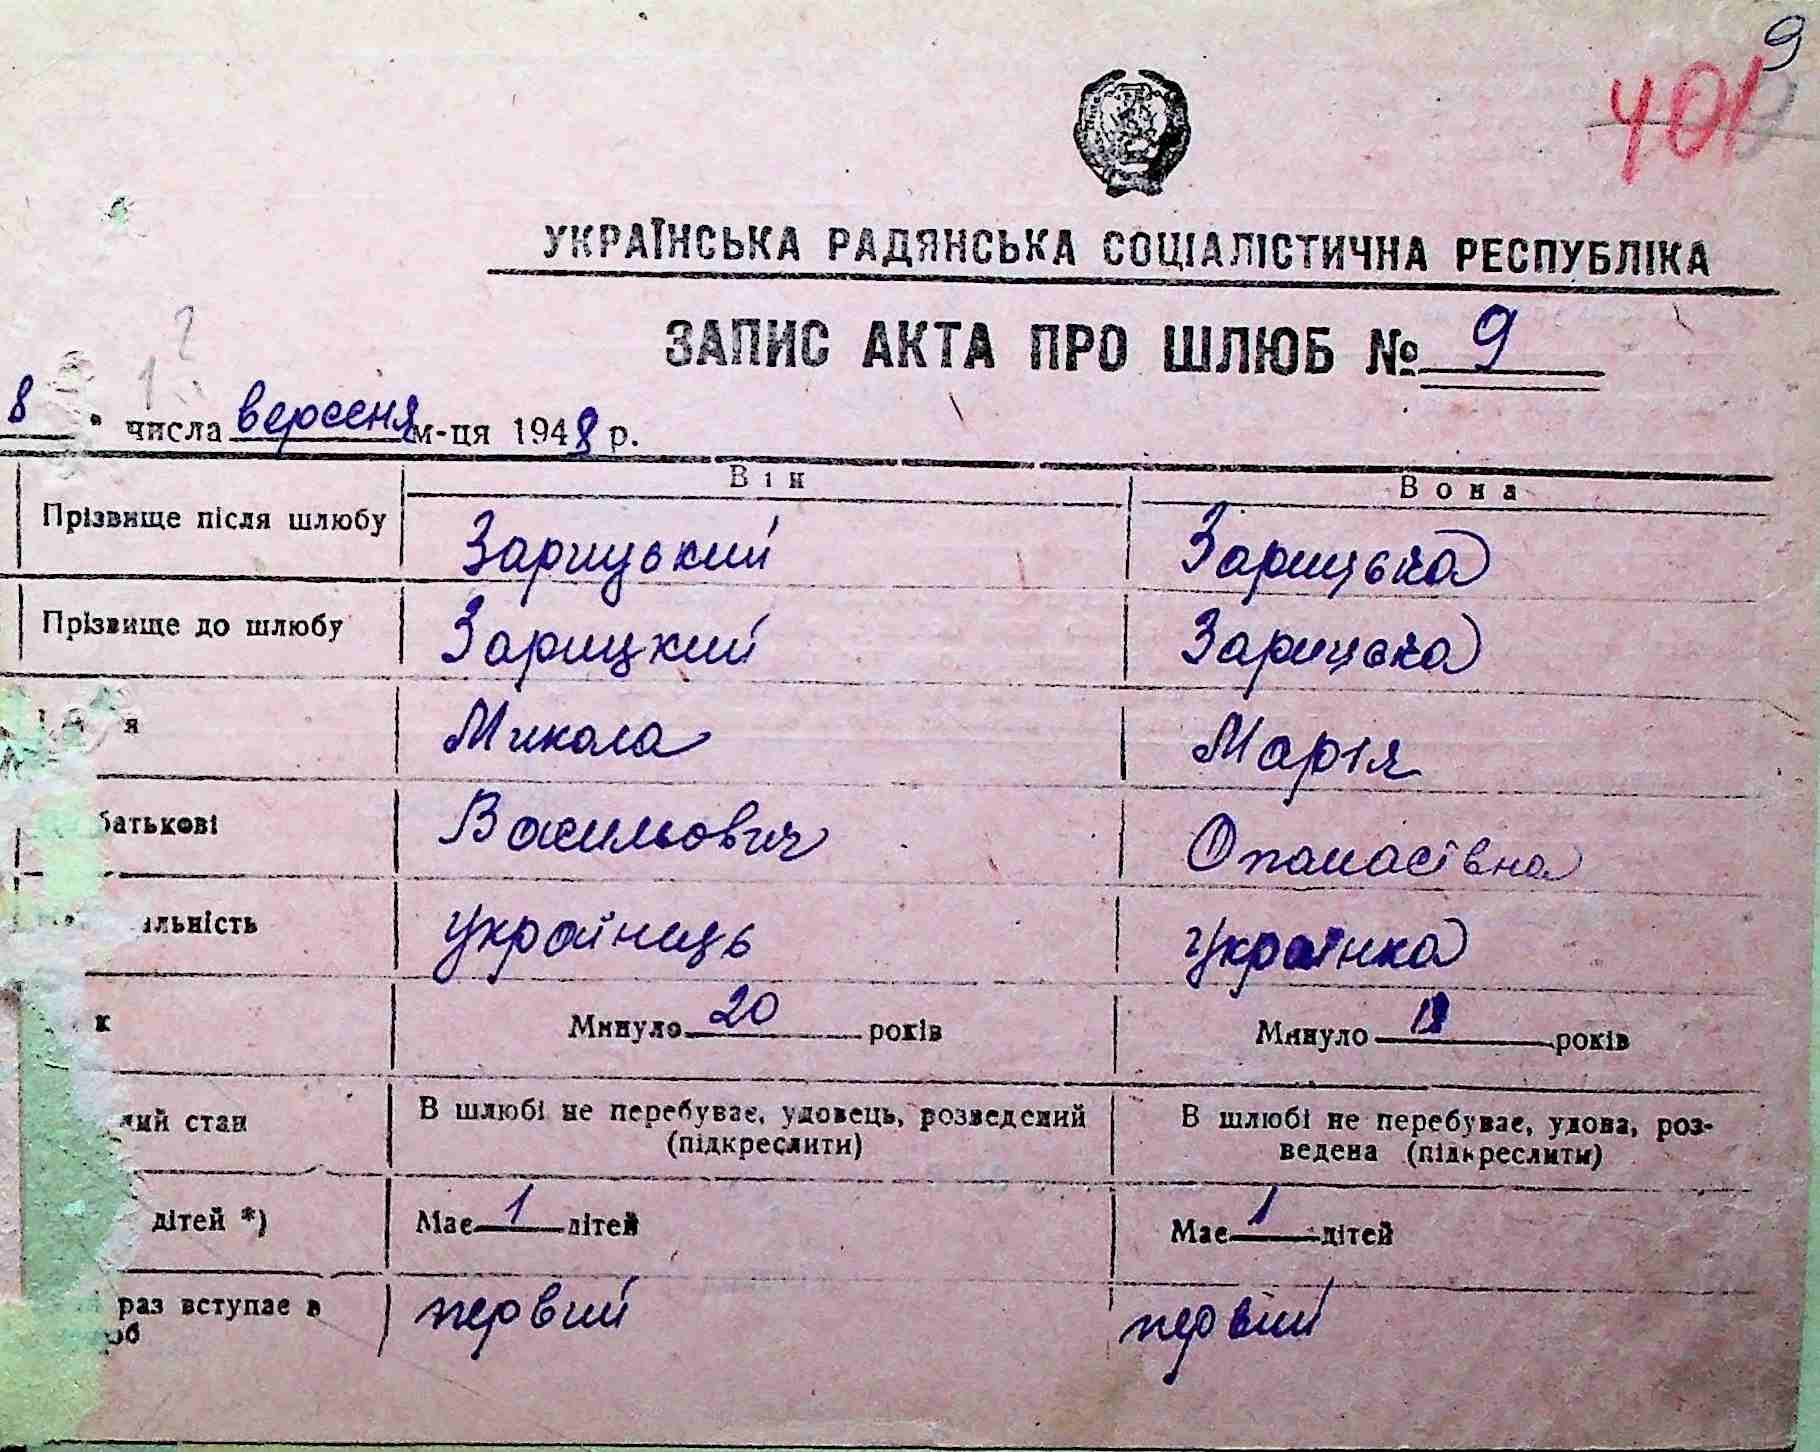 9
401
УКРАЇНСЬКА РАДЯНСЬКА СОЦІАЛІСТИЧНА РЕСПУБЛІКА
ЗАПИС АКТА ПРО ШЛЮБ № 9
12
8 " числа вересня м-ця 1948 р.
Він Вона
Прізвище після шлюбу Зарицький Зарицька
Прізвище до шлюбу Зарицкий Зарицька
я Микола Марія
батькові Васильович Опанасівна
альність українець українка
к Минуло 20 років Минуло років
ий стан В шлюбі не перебуває, удовець, розведений В шлюбі не перебуває, удова, роз-
(підкреслити) ведена (підкреслити)
дітей *) Має 1 дітей Має 1 дітей
раз вступає в первий первий
юб